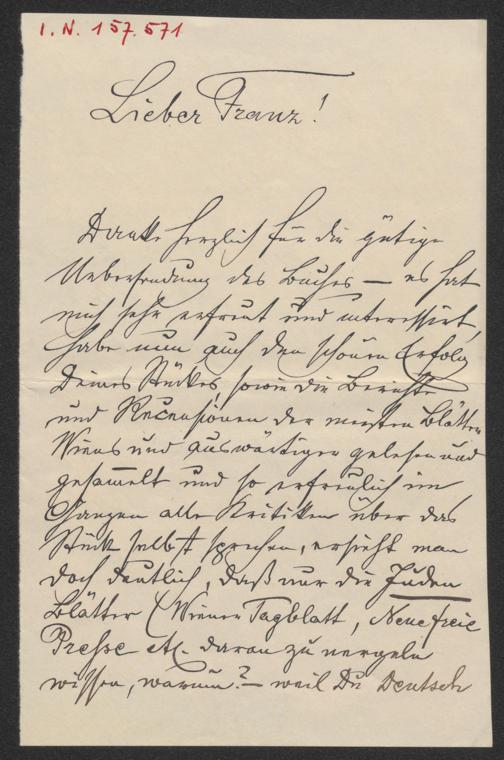 I. N. 157.571
Lieber Franz!
Danke herzlich für die gütige
Uebersendung des Buches — es hat
mich sehr erfreut und interessirt,
habe nun auch den schönen Erfolg
Deines Stückes, sowie die Berichte
und Recensionen der meisten Blätter
Wiens und auswärtigen gelesen und
gesammelt und so erfreulich im
Ganzen alle Kritiken über das
Stück selbst sprechen, ersieht man
doch deutlich, daß nur die Juden
Blätter (Wiener Tagblatt, Neue freie
Presse etc. daran zu nergeln
wissen, warum? — weil Du Deutsch